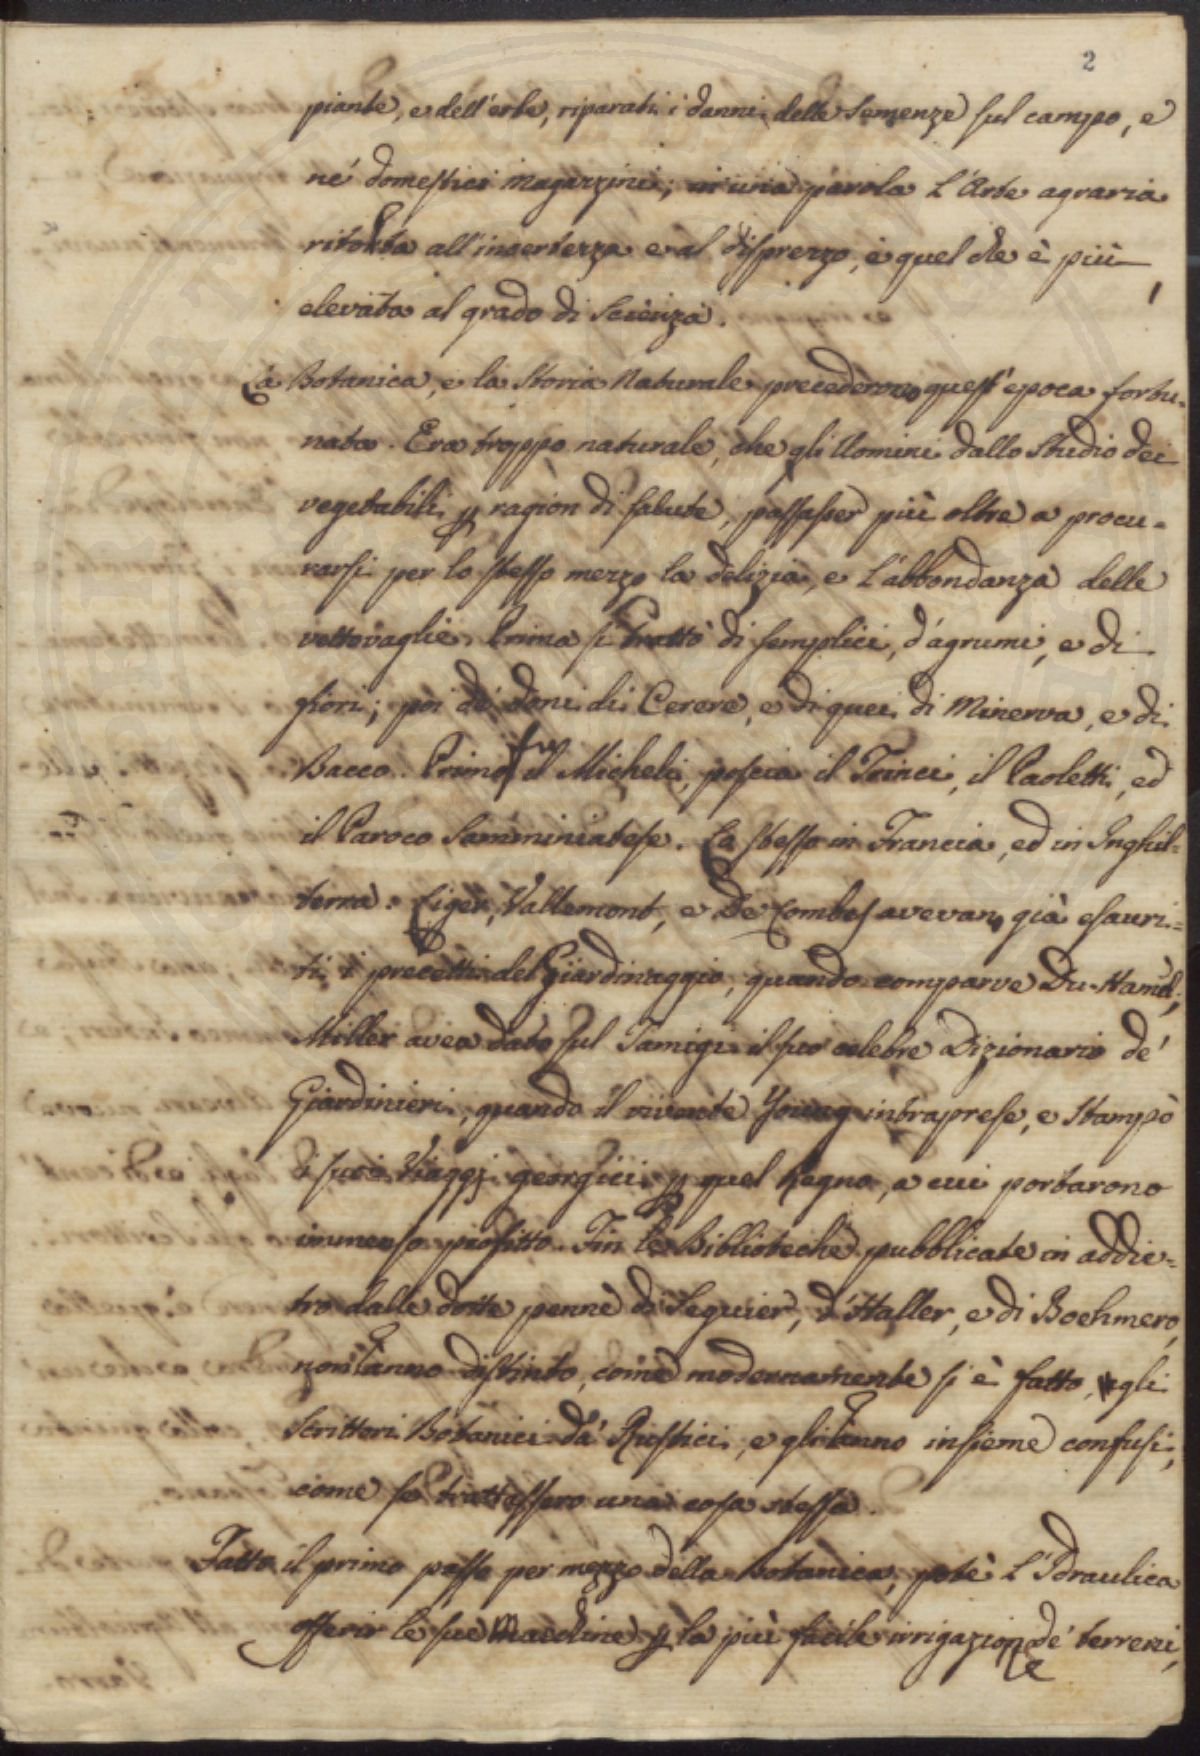 2
piante, e dell'erbe, riparati i danni delle Semenze sul campo, e
né domestici Magazzini; in una parola l'Arte agraria
ritolta all'incertezza e al disprezzo, e quel che è più
elevata al grado di Scienza.
La Botanica, e la Storia Naturale precederono quest'epoca fortu-
nata. Era troppo naturale, che gli Uomini dallo Studio dei
vegetabili p ragion di salute, passasser più oltre a procu-
rarsi per lo stesso mezzo la delizia, e l'abbondanza delle
vettovaglie. Prima si trattò di semplici, d'agrumi, e di
fiori; poi de' doni di Cerere, e di quei di Minerva, e di
Bacco. Primo fu il Micheli, poscia il Trinci, il Paoletti, ed
il Paroco Samminiatese. Lo stesso in Francia, ed in Inghil-
terra. Liger, Vallemont, e De Combes avevano già esauri-
ti i precetti del Giardinaggio, quando comparve Du-Hamel;
Miller avea dato sul Tamigi il suo celebre Dizionario de'
Giardinieri, quando il vivente Young intraprese, e Stampò
i suoi Viaggi georgici p quel Regno, a cui portarono
immenso profitto. Fin le Biblioteche pubblicate in addie-
tro dalle dotte penne di Seguier, d'Haller, e di Boehmero,
non hanno distinto, come modernamente si è fatto, gli
Scrittori Botanici da' Rustici, e gli hanno insieme confusi,
come se trattassero una cosa stessa.
Fatto il primo passo per mezzo della Botanica, potè l'Idraulica
offerir le sue Macchine p la più facile irrigazione de' terreni,